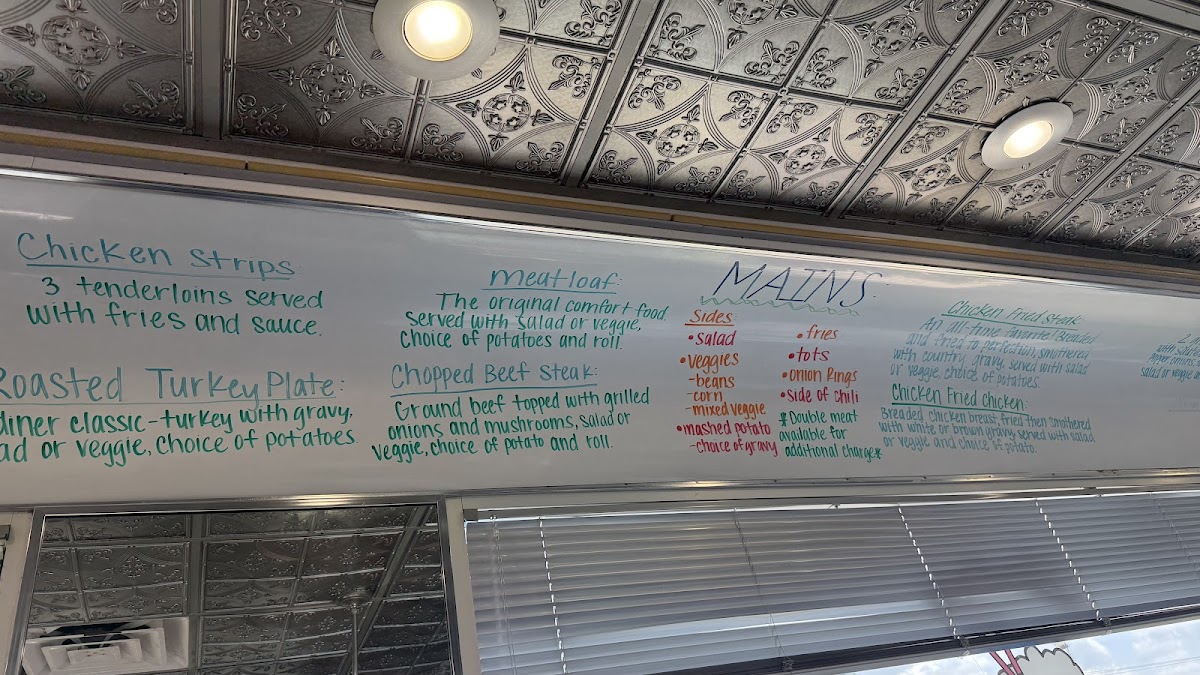 Chicken Strips
3 tenderloins served
with fries and sauce.
Roasted Turkey Plate:
diner classic - turkey with gravy,
or veggie, choice of potatoes.
meatloaf:
The original comfort food
served with salad or veggie,
choice of potatoes and roll.
Chopped Beef Steak:
Ground beef topped with grilled
onions and mushrooms, salad or
veggie, choice of potato and roll.
MAINS
Sides:
• salad
• veggies
- beans
- corn
- mixed veggie
• mashed potato
- choice of gravy
• fries
• tots
• onion Rings
• side of chili
* Double meat
available for
additional charge *
Chicken Fried Steak
An all-time favorite! Breaded
and fried to perfection, smothered
with country gravy, served with salad
or veggie, choice of potatoes.
Chicken Fried Chicken:
Breaded chicken breast, fried then smothered
with white or brown gravy, served with salad
or veggie and choice of potato.
2
salad or